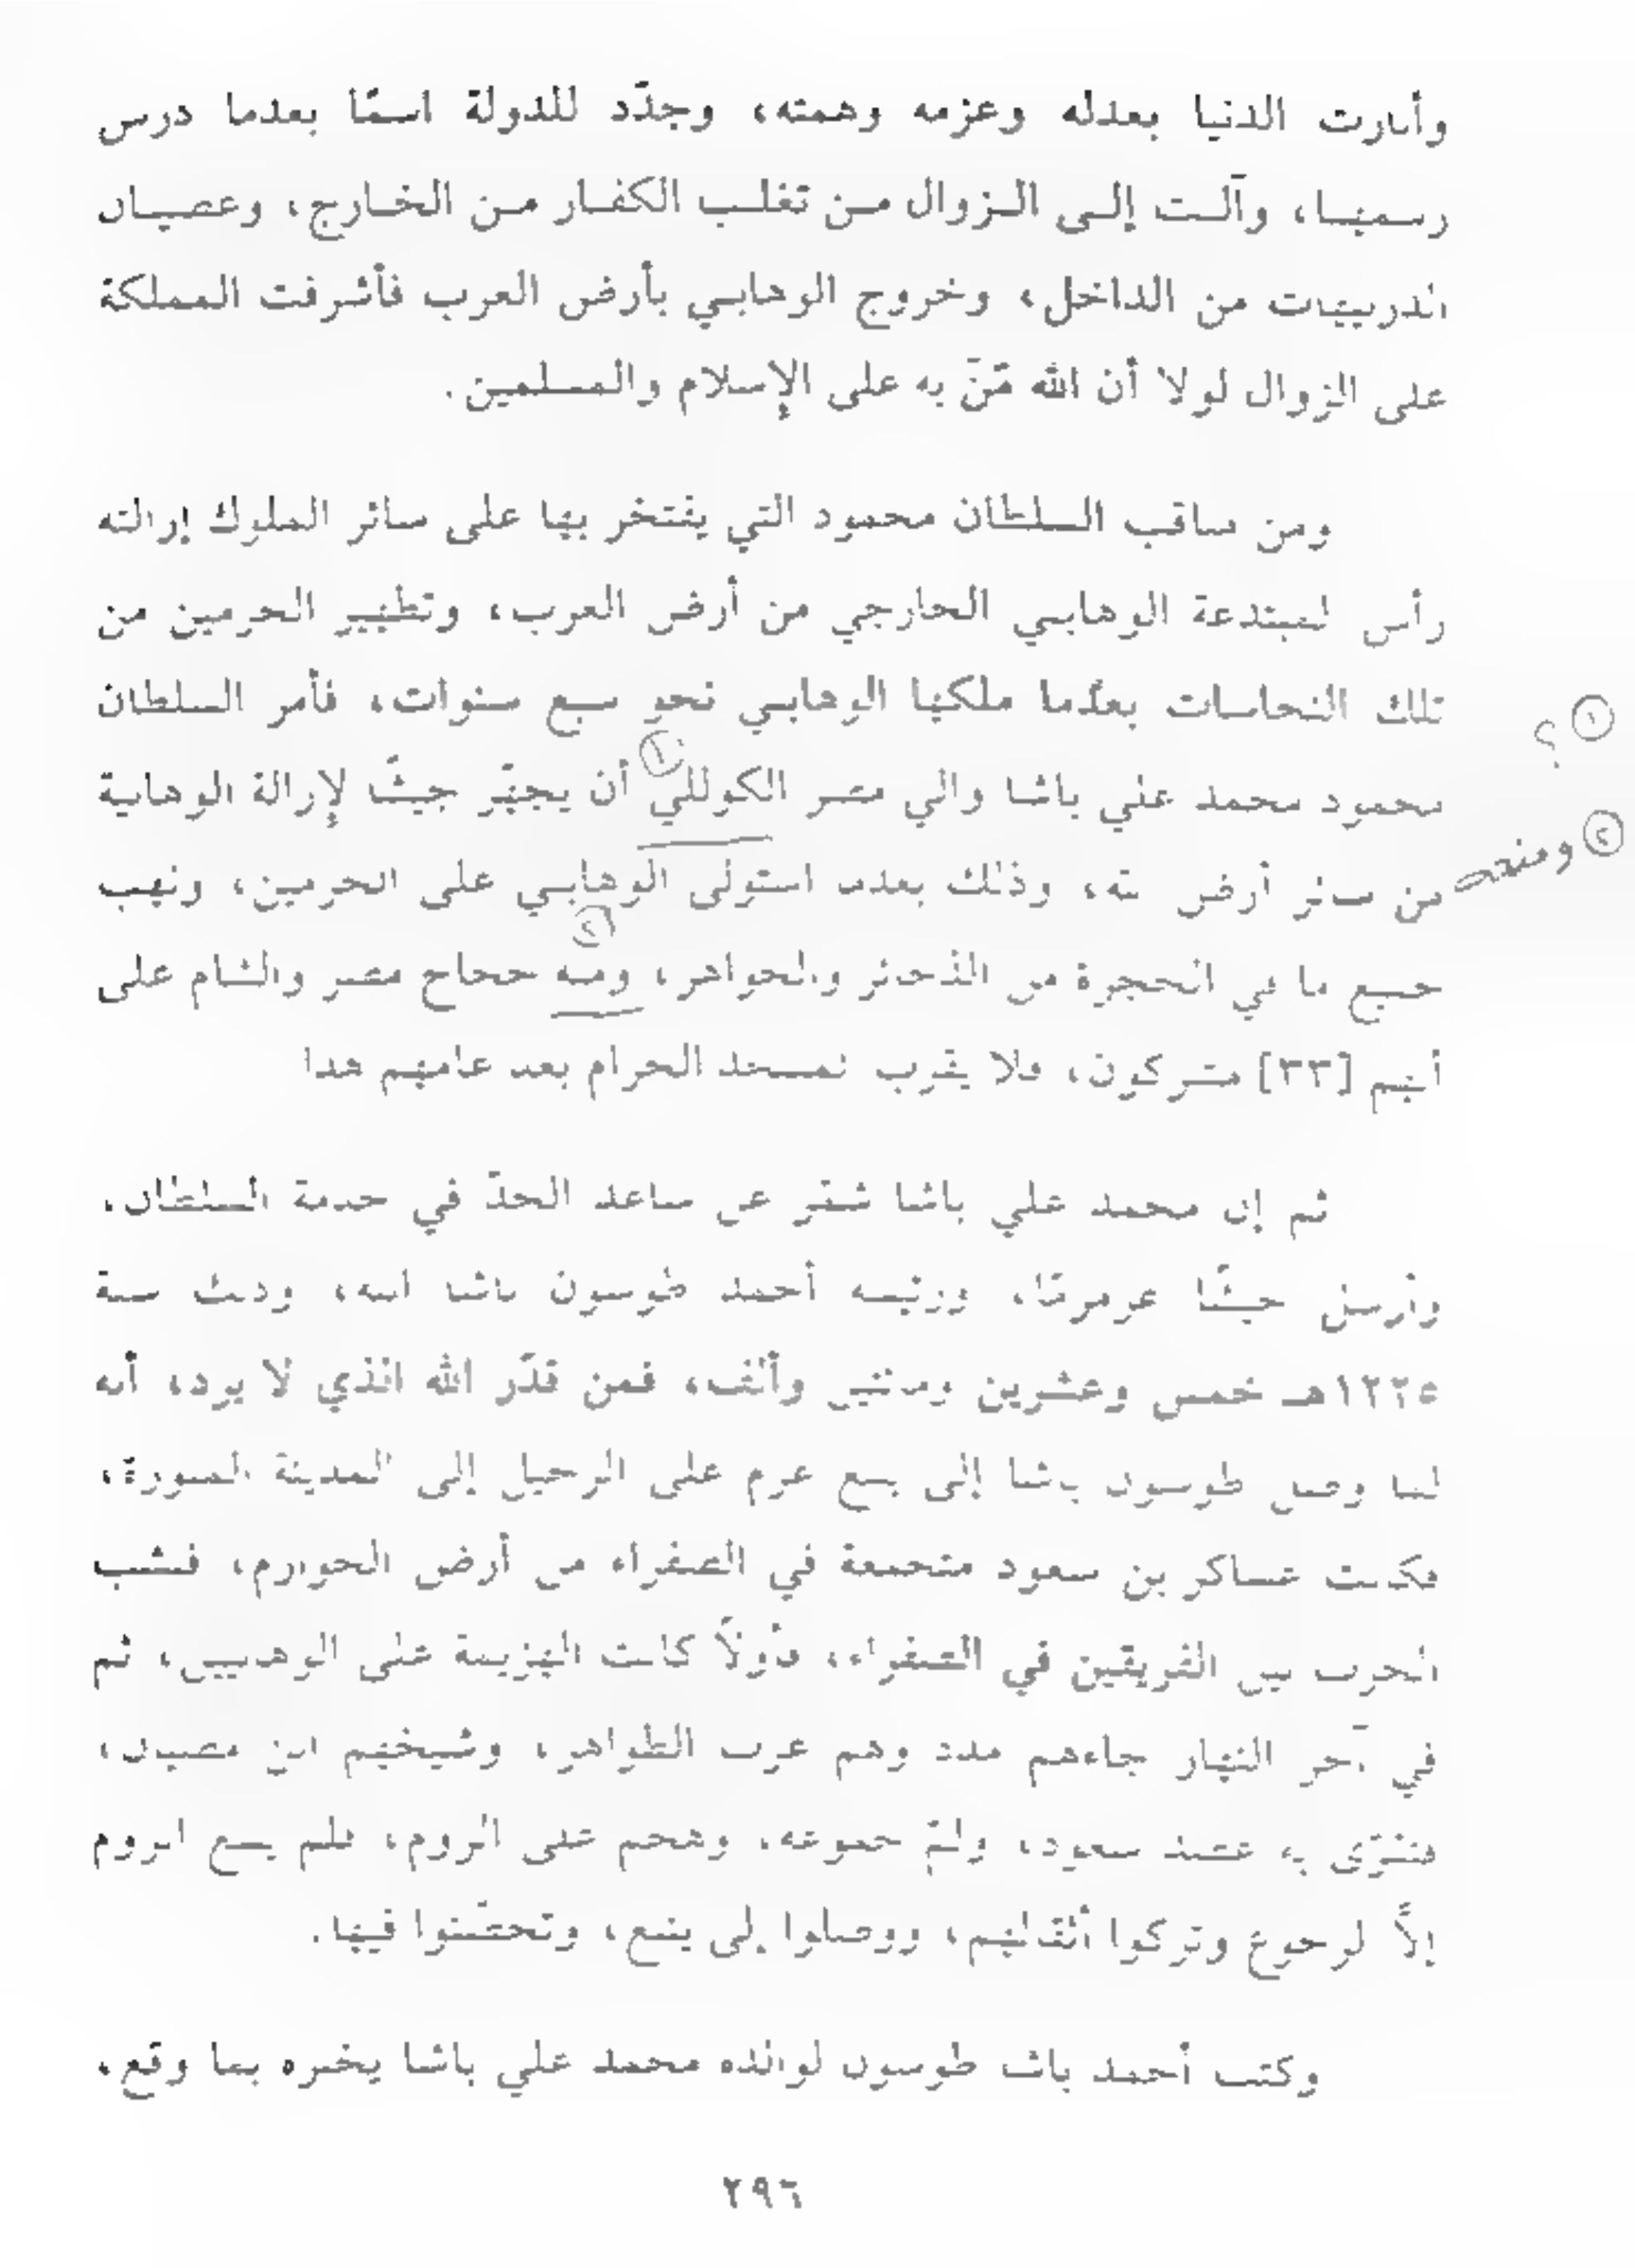 وأنارت الدنيا بعدله وعزمه وهمته، وجدّد للدولة اسمًا بعدما درس
رسمها، وآلت إلى الزوال من تغلب الكفار من الخارج، وعصيان
من الداخل، وخروج الوهابي بأرض العرب فأشرفت المملكة
على الزوال لولا أن الله مَنّ به على الإسلام والمسلمين.
ومن مناقب السلطان محمود التي يفتخر بها على سائر الملوك إزالته
رأس المبتدعة الوهابي الخارجي من أرض العرب، وتطهير الحرمين من
تلك النجاسات بعدما ملكها الوهابي نحو سبع سنوات، فأمر السلطان
① ؟
محمود محمد علي باشا والي مصر الكوللي ① أن يجهّز جيشًا لإزالة الوهابية
② ومنعه
من سائر أرض الله، وذلك بعدما استولى الوهابي على الحرمين، ونهب
جميع ما في الحجرة من الذخائر والجواهر، ومنه ② حجاج مصر والشام على
أنهم [٣٣] مشركون، فلا يقرب المسجد الحرام بعد عامهم هذا
ثم إن محمد علي باشا شمّر عن ساعد الجدّ في خدمة السلطان،
وأرسل جيشًا عرمرمًا، ورئيسه أحمد طوسون باشا ابنه، وذلك سنة
١٢٢٥هـ خمس وعشرين ومائتين وألف، فمن قدّر الله الذي لا يرد، أنه
لما وصل طوسون باشا إلى ينبع عزم على الرحيل إلى المدينة المنورة،
فكانت عساكر بن سعود متجمعة في الصفراء من أرض الحوازم، فنشب
الحرب بين الفريقين في الصفراء، فأولاً كانت الهزيمة على الوهابيين، ثم
في آخر النهار جاءهم مدد وهم عرب الظواهر، وشيخهم ابن مضيان،
فتقوّى به عضد سعود، ولمّ جموعه، وهجم على الروم، فلم يسع الروم
إلاّ الرجوع وتركوا أثقالهم، ووصلوا إلى ينبع، وتحصّنوا فيها.
وكتب أحمد باشا طوسون لوالده محمد علي باشا يخبره بما وقع،
٢٩٦